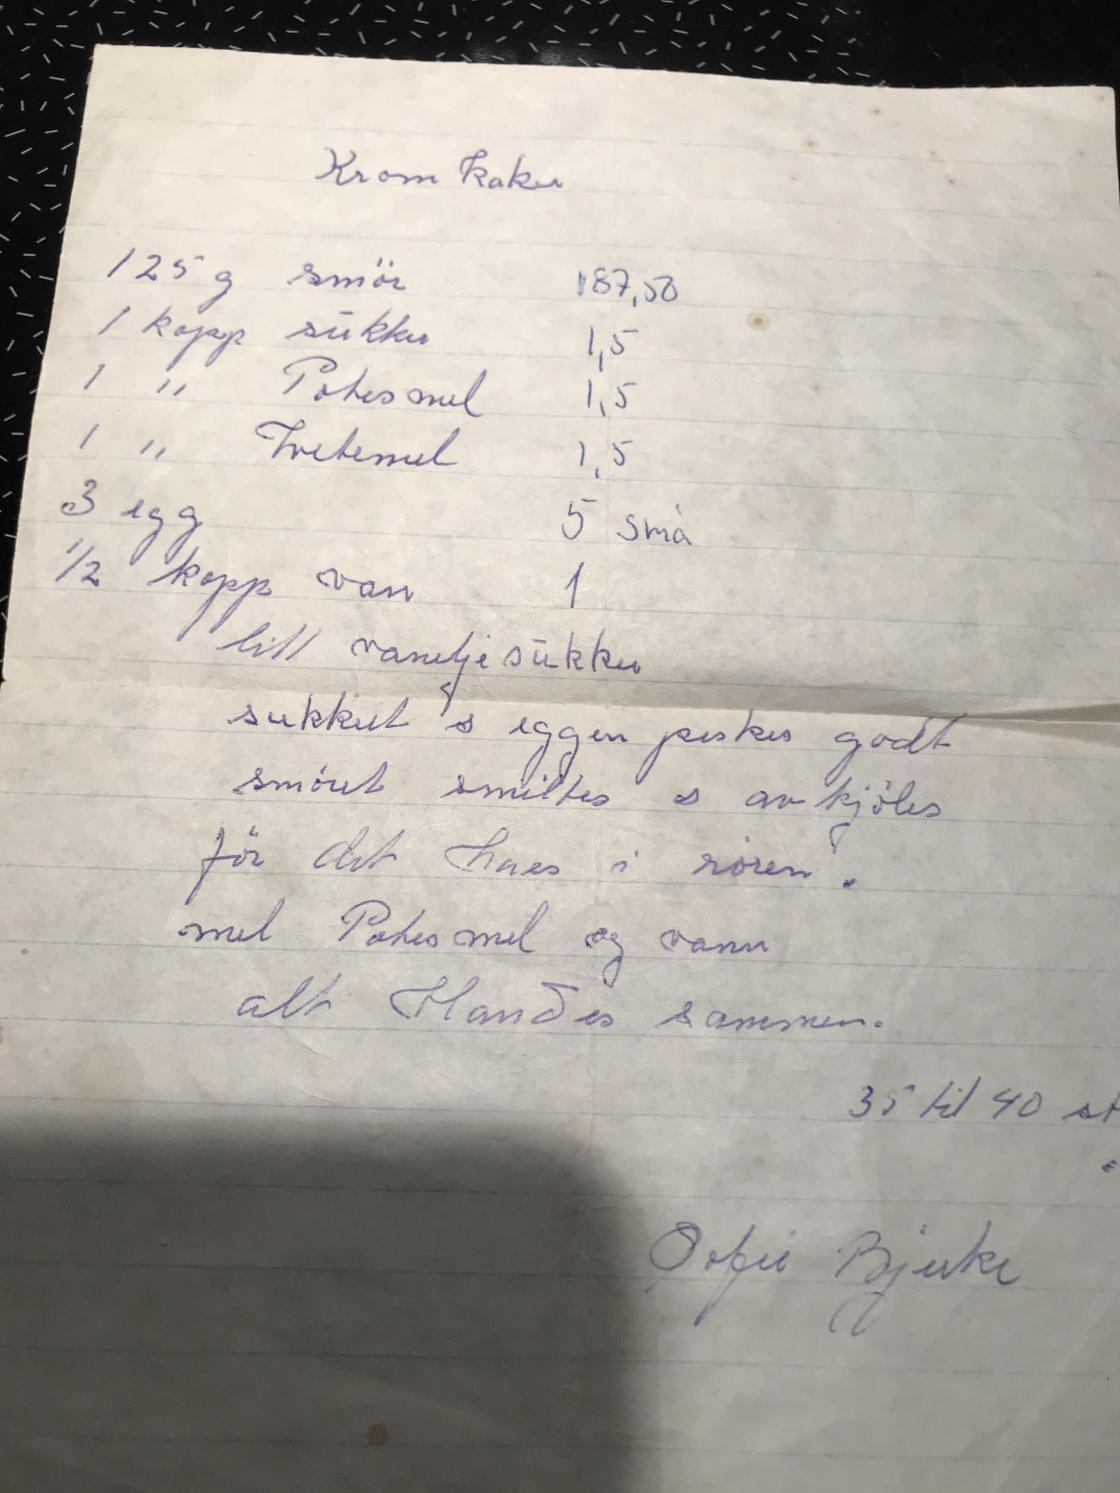 Krom kaker
125 g smör 187,50
1 kopp sükker 1,5
1 " Potesmel 1,5
1 " Hvetemel 1,5
3 egg 5 små
1/2 kopp van 1
litt vaneljesükker
sukkeret & eggen piskes godt
smöret smeltes & avkjöles
för det haes i rören.
mel Potesmel og vann
alt Blandes sammen.
35 til 40 st
Sofie Bjerke